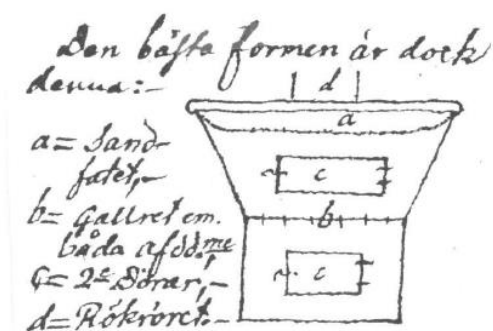 Den bästa formen är dock
denna:-
d
a
a= Sand-
fatet,-
c
b= Gallret em.
b
båda afdd.me
c= 2e Dörar,-
c
d= Rökröret.-